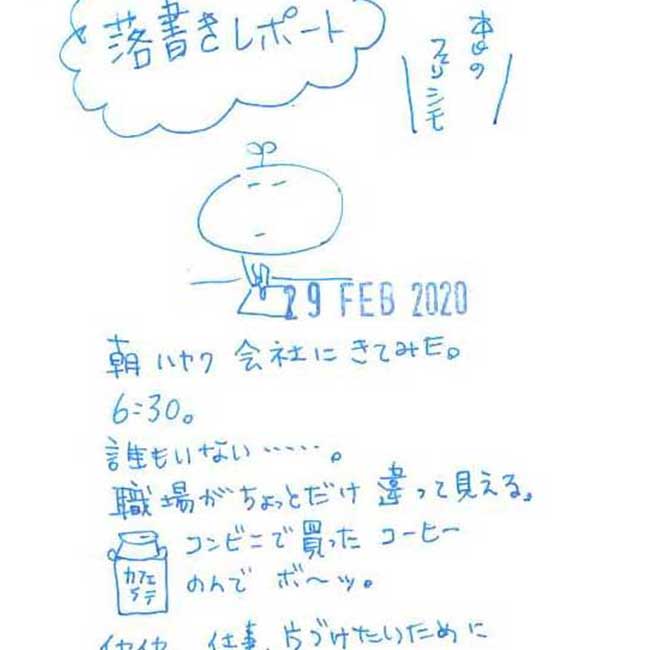 落書きレポート
本日の
フェリシモ
29 FEB 2020
朝ハヤク 会社にきてみた。
6:30。
誰もいない……。
職場がちょっとだけ 違って見える。
コンビニで買った コーヒー
のんで ボ〜ッ。
カフェ
ラテ
イヤイヤ、仕事、片づけたいために